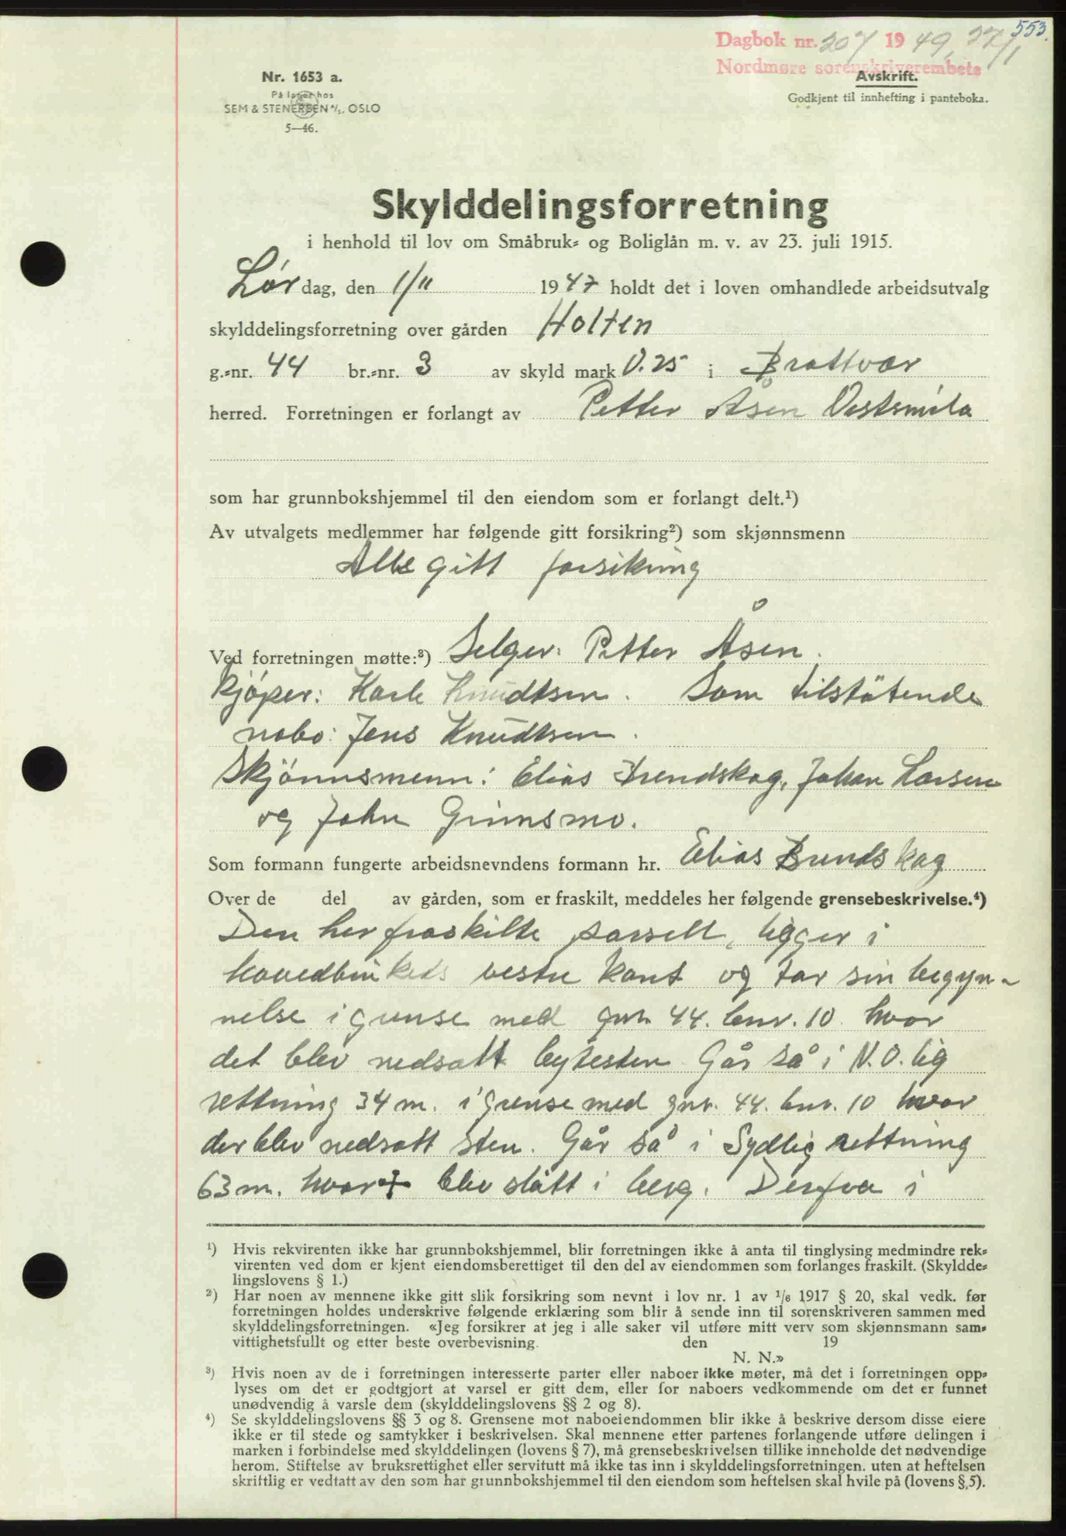 553.
Dagbok nr. 207 1949, 27/1
Nordmøre sorenskriverembete
Nr. 1653 a.
På lager hos
SEM & STENERSEN A/S. OSLO
5—46.
Avskrift.
Godkjent til innhefting i panteboka.
Skylddelingsforretning
i henhold til lov om Småbruk= og Boliglån m. v. av 23. juli 1915.
Lørdag, den 1/11 1947 holdt det i loven omhandlede arbeidsutvalg
skylddelingsforretning over gården Holten
g.=nr. 44 br.=nr. 3 av skyld mark 0.25 i Brattvær
herred. Forretningen er forlangt av Petter Åsen Vestsmøla
som har grunnbokshjemmel til den eiendom som er forlangt delt.¹)
Av utvalgets medlemmer har følgende gitt forsikring²) som skjønnsmenn
Alle gitt forsikring
Ved forretningen møtte:³) Selger: Petter Åsen.
Kjøper: Karle Knudtsen. Som tilstøtende
nabo: Jens Knudtsen.
Skjønnsmenn: Elias Brendskag, Johan Larsen
og John Grimsmo.
Som formann fungerte arbeidsnevndens formann hr. Elias Brendskag
Over de del av gården, som er fraskilt, meddeles her følgende grensebeskrivelse.⁴)
Den her fraskilte parsell, ligger i
hovedbrukets vestre kant og tar sin begyn-
nelse i grense med gnr. 44. bnr. 10 hvor
det blev nedsatt bytesten Går så i N.O. lig
rettning 34 m. i grense med gnr. 44. bnr. 10 hvor
der blev nedsatt sten. Går så i Sydlig rettning
63 m. hvor + blev slått i berg. Derfra i
¹) Hvis rekvirenten ikke har grunnbokshjemmel, blir forretningen ikke å anta til tinglysing medmindre rek=
virenten ved dom er kjent eiendomsberettiget til den del av eiendommen som forlanges fraskilt. (Skyldde=
lingslovens § 1.)
²) Har noen av mennene ikke gitt slik forsikring som nevnt i lov nr. 1 av 1/6 1917 § 20, skal vedk. før
forretningen holdes underskrive følgende erklæring som blir å sende inn til sorenskriveren sammen med
skylddelingsforretningen. «Jeg forsikrer at jeg i alle saker vil utføre mitt verv som skjønnsmann sam=
vittighetsfullt og etter beste overbevisning. den 19
N. N.»
³) Hvis noen av de i forretningen interesserte parter eller naboer ikke møter, må det i forretningen opp=
lyses om det er godtgjort at varsel er gitt dem, eller for naboers vedkommende om det er funnet
unødvendig å varsle dem (skylddelingslovens §§ 2 og 8).
⁴) Se skylddelingslovens §§ 3 og 8. Grensene mot naboeiendommen blir ikke å beskrive dersom disse eiere
ikke er til stede og samtykker i beskrivelsen. Skal mennene etter partenes forlangende utføre delingen i
marken i forbindelse med skylddelingen (lovens § 7), må grensebeskrivelsen tillike inneholde det nødvendige
herom. Stiftelse av bruksrettighet eller servitutt må ikke tas inn i skylddelingsforretningen. uten at heftelsen
skriftlig er vedtatt av den som har grunnbokshjemmel til den eiendom som heftelsen skal hvile på (lovens § 5).